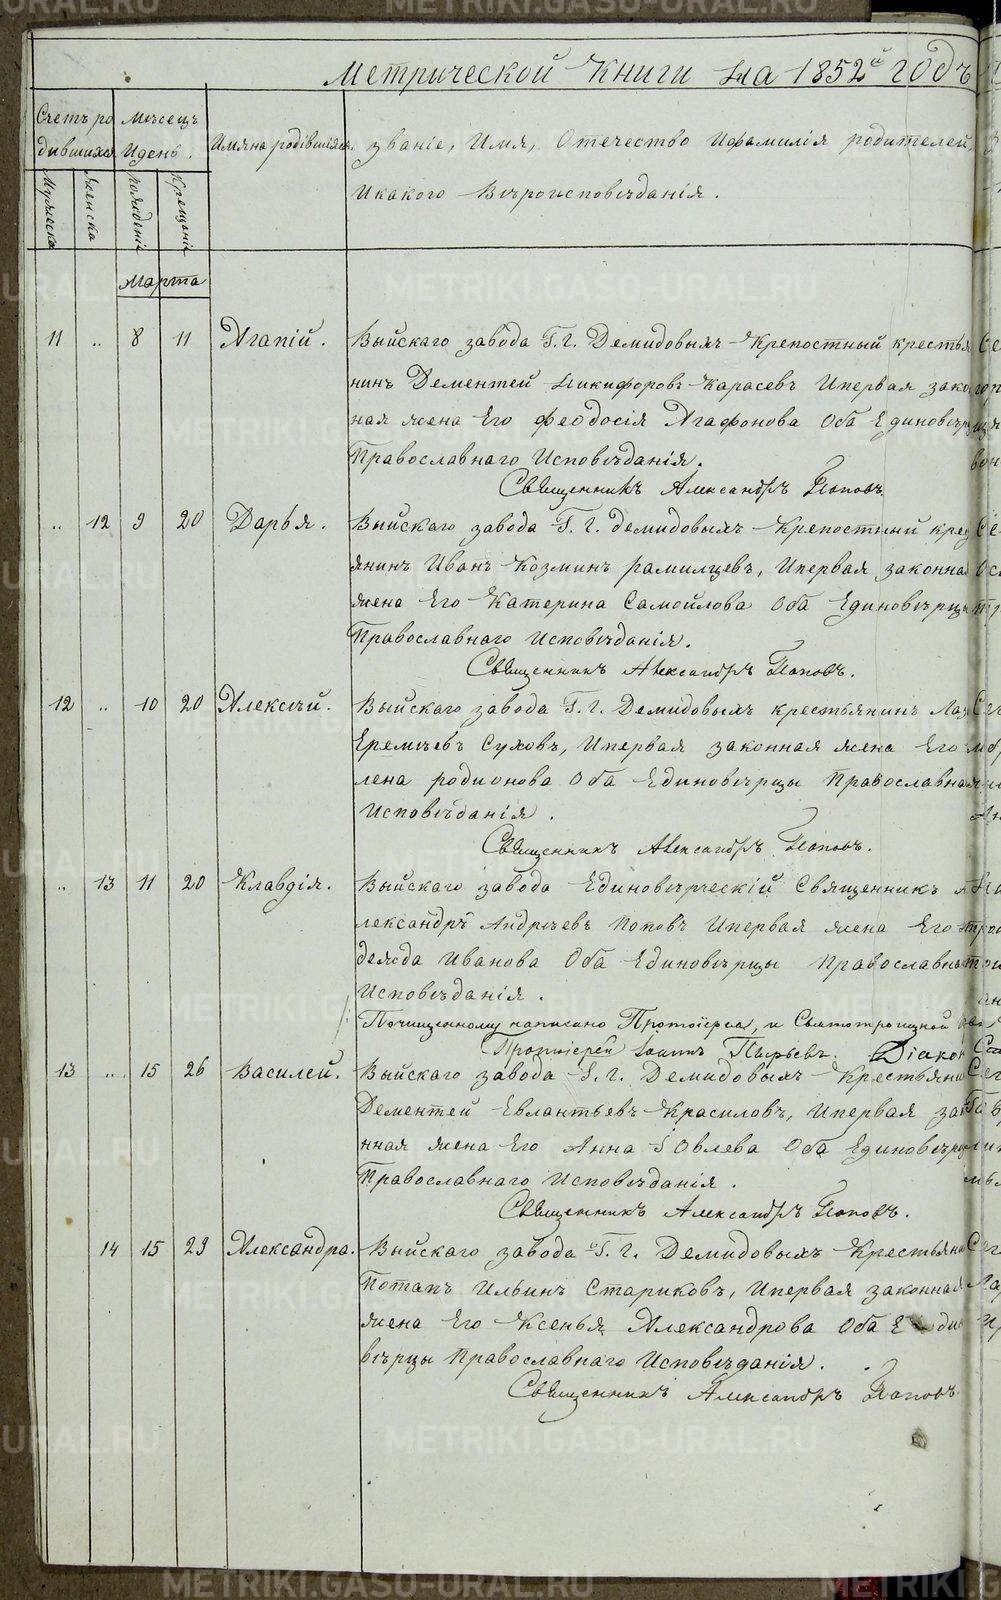 Метрической Книги на 1852й годъ
Счетъ ро
дившихся
Мѣсецъ
и день.
Имяна родівшіхся.
Званіе, Имя, Отечество и фамилія родителей,
и какого Вѣроисповѣданія.
Мужеска
Женска
рожденія
Крещенія
Марта
11 .. 8 11 Агапій. Выйскаго завода Г. Г. Демидовыхъ Крепостный крестья
нинъ Дементей Никифоровъ Карасевъ и первая зако
ная жена Его Феодосія Агафонова Оба Единовѣр
Православнаго Исповѣданія.
Священникъ Александръ Поповъ.
.. 12 9 20 Дарья. Выйскаго завода Г. Г. Демидовыхъ Крепостный крес
янинъ Иванъ Козминъ рамилцевъ, и первая законна
жена Его Катерина Самойлова Оба Единовѣрцы
Православнаго исповѣданія.
Священникъ Александръ Поповъ.
12 .. 10 20 Алексѣй. Выйскаго завода Г. Г. Демидовыхъ крестьянинъ Ла
Еремѣевъ Суховъ, и первая законная жена Его
лена родионова Оба Единовѣрцы Православна
Исповѣданія.
Священникъ Александръ Поповъ.
.. 13 11 20 Клавдія. Выйскаго завода Единовѣрческій Священникъ А
лександръ Андрѣевъ Поповъ и первая жена Его
дежда Иванова Оба Единовѣрцы Православны
Исповѣданія.
По чищенному написано Протоіерея, и Святотроицкой
Протоіерей Іоаннъ Пырьевъ. Діакон
13 .. 15 26 Василей. Выйскаго завода Г. Г. Демидовыхъ Крестьяни
Дементей Евлантьевъ Красиловъ, и первая зако
нная жена Его Анна Іовлева Оба Единовѣрц
Православнаго исповѣданія.
Священникъ Александръ Поповъ.
14 15 29 Александра. Выйскаго завода Г. Г. Демидовыхъ Крестьяни
Потапъ Ильинъ Стариковъ, и первая законная
жена Его Ксенья Александрова Оба Е ди
вѣрцы Православнаго Исповѣданія.
Священникъ Александръ Поповъ.
METRIKI.GASO-URAL.RU